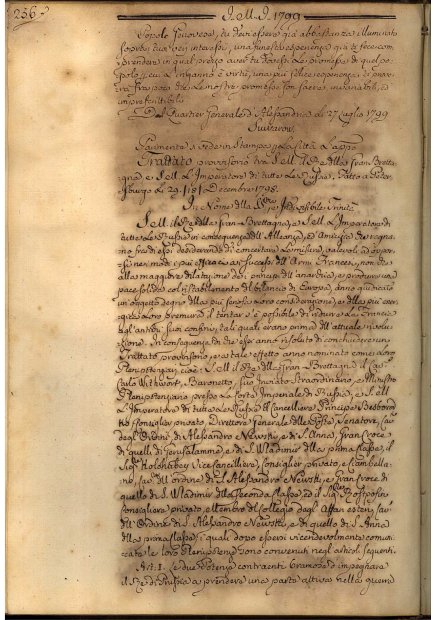 256
J. M. J. 1799
Popolo Genovese, tu devi essere già abbastanza illuminato
sopra i tuoi veri interessi, una funesta esperienza già ti fece com-
prendere in qual prezzo aver tu dovessi le promesse di quel po-
polo, i cui inganno è virtù, una più felice esperienza di
frà poco che le nostre promesse son sacre, invariabili, ed
imprescrittibili.
Dal Quartier Generale d'Alessandria li 27 Luglio 1799
Suwarow.
Finalmente si vede in Stampa per la Città l'appo
Trattato provisorio trà S. M. il Rè della Gran Bretta-
gna, e S. M. l'Imperatore di tutte le Russie, Fatto a Peter-
sburgo li 29. (18) Decembre 1798.
In Nome della SS.ma ed Indivisibile Trinità
S. M. il Rè della Gran Brettagna, e S. M. l'Imperator di
tutte le Russie in conseguenza dell'Alleanza, ed Amicizia che regna-
no frà di essi desiderando di concertare le misure
nel modo più efficace a' successi dell'Armi Francesi, non che
alla maggiore dilatazione de' principj dell'anarchia, e procurare una
pace solida col ristabilimento del bilancio di Europa, anno giudicato
un oggetto degno della più seriosa loro considerazione, e della più
loro premura il tentar s'è possibile di ridurre la Francia
negl'antichi suoi confini, tali quali erano prima dell'attuale rivolu-
zione. In conseguenza di che essi anno risoluto di conchiudere un
Trattato provisorio, ed a tale effetto anno nominato
Plenipotenziarj, cioè: S. M. il Rè della Gran Brettagna il Cav.
Carlo Witwort, Baronetto, suo Inviato Straordinario, e Ministro
Plenipotenziario presso la Corte Imperiale di Russia, e S. M.
l'Imperatore di tutte le Russie il Cancelliere Principe Besborod
Kò Consiglier privato, Direttore Generale delle Poste, Senatore, Cav.
degl'Ordini di Alessandro Newski, e di S. Anna, Gran Croce
di quelli di Gerusalemme, e di S. Wladimir della prima classe, il
Sig.r Kotchubey Vice Cancelliere, Consiglier privato, e Ciambella-
no, Cav. dell'ordine di S. Alessandro Newski, e Gran Croce di
quello di S. Wladimir della seconda classe, ed il Sig. Rostopsin
Consigliere privato, Membro del Collegio degl'Affari esteri, Cav.
dell'Ordine di S. Alessandro Newski, e di quello di S. Anna
della prima classe, i quali dopo essersi vicendevolmente comuni-
cate le loro Plenipotenze sono convenuti negl'articoli seguenti.
Art. I. Le due Potenze contraenti bramose d'impegnare
il Rè di Prussia a prendere una parte attiva nella guerra